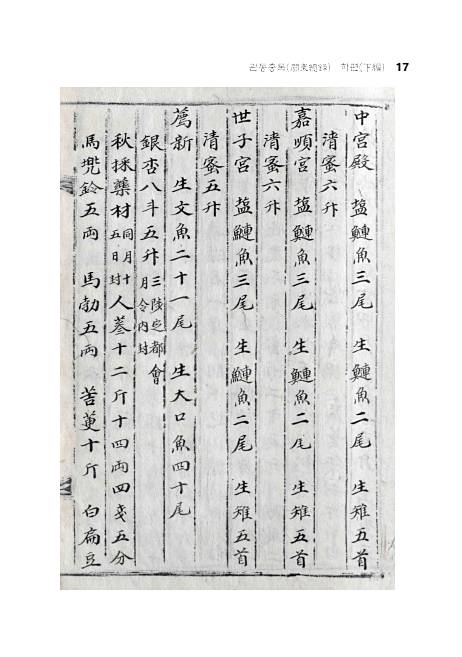 관동총록(關東總錄) 하편(下編) 17
中宮殿 塩鰱魚三尾 生鰱魚二尾 生雉五首
清蜜六升
嘉順宮 塩鰱魚三尾 生鰱魚二尾 生雉五首
清蜜六升
世子宮 塩鰱魚三尾 生鰱魚二尾 生雉五首
清蜜五升
薦新 生文魚二十一尾 生大口魚四十尾
銀杏八斗五升 三都會月令内封
秋採藥材 同月十五日封 人蔘十二斤十四両四戔五分
馬兜鈴五両 馬勃五両 苦十斤 白扁豆